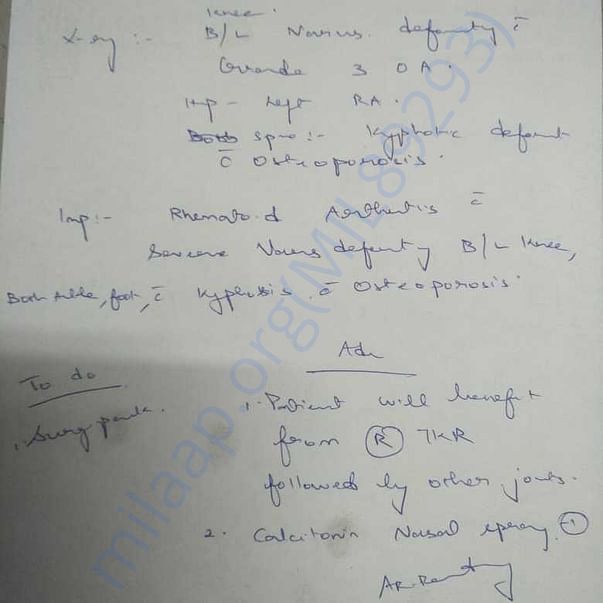 Knee.
X-ray :- B/L Varus deformity c̄
Grade 3 OA.
Hip - Left RA.
Spine :- Kyphotic deformity
c̄ Osteoporosis.
Imp :- Rhematoid Aarthritis c̄
Severe Varus deformity B/L Knee,
Both Ankle, foot, c̄ Kyphosis c̄ Osteoporosis.
Adv
To do
1. Surg
1. Patient will benefit
from Ⓡ TKR
followed by other joints.
2. Calcitonin Nasal spray
milaap.org(MIL89293)